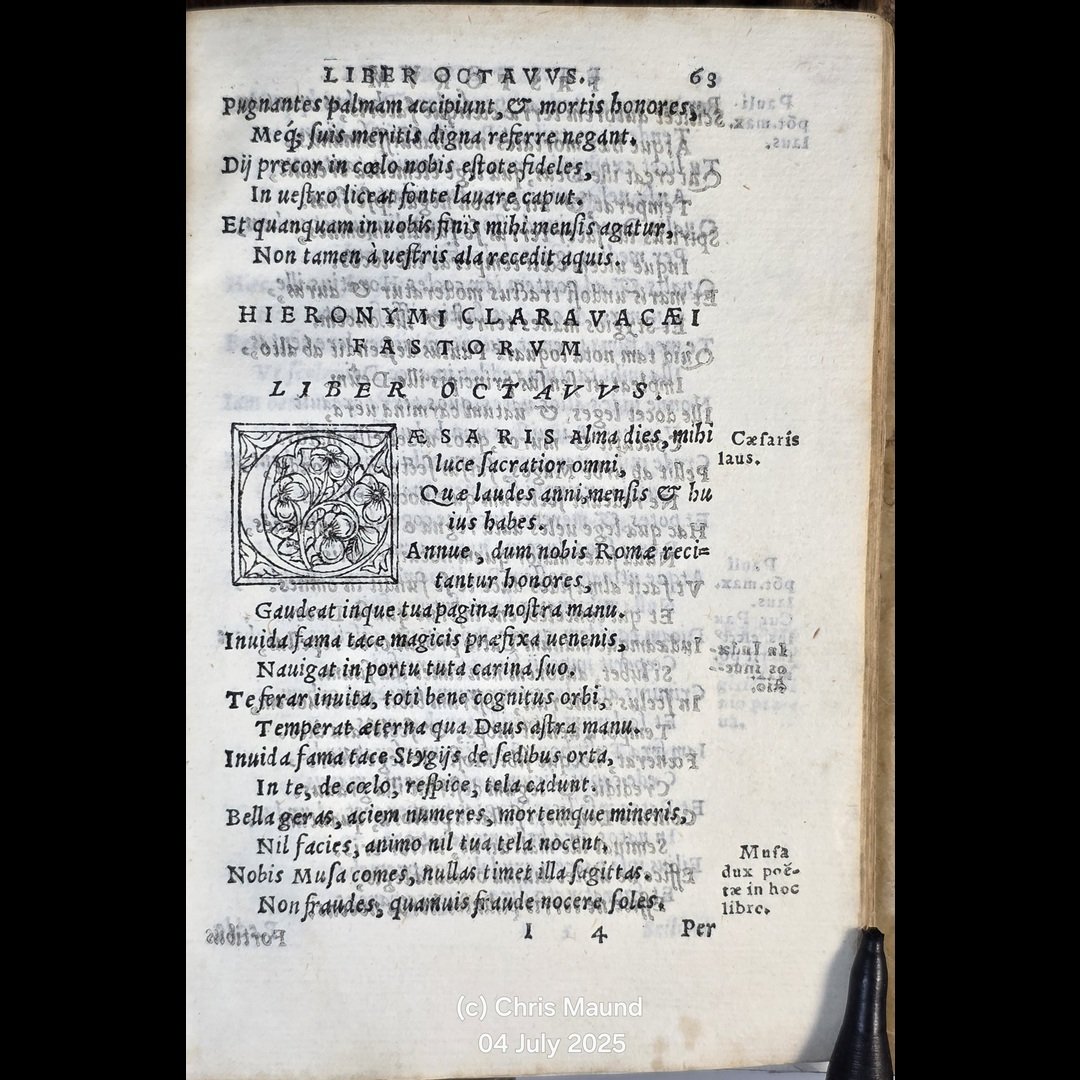 LIBER OCTAVVS. 63
pugnantes palmam accipiunt, & mortis honores,
Meq́; suis meritis digna referre negant.
Dij precor in cœlo nobis estote fideles,
In uestro liceat fonte lauare caput.
Et quanquam in uobis finis mihi mensis agatur,
Non tamen à uestris ala recedit aquis.
HIERONYMI CLARAVACÆI
FASTORVM
LIBER OCTAVVS.
CÆSARIS alma dies, mihi
luce sacratior omni,
Quæ laudes anni, mensis & hu
ius habes.
Annue, dum nobis Romæ reci=
tantur honores,
Gaudeat inque tua pagina nostra manu.
Inuida fama tace magicis præfixa uenenis,
Nauigat in portu tuta carina suo.
Te ferar inuita, toti bene cognitus orbi,
Temperat æterna qua Deus astra manu.
Inuida fama tace Stygijs de sedibus orta,
In te, de cœlo, respice, tela cadunt.
Bella geras, aciem numeres, mortemque mineris,
Nil facies, animo nil tua tela nocent.
Nobis Musa comes, nullas timet illa sagittas.
Non fraudes, quamuis fraude nocere soles.
I 4 Per
Cæsaris
laus.
Musa
dux poë-
tæ in hoc
libro.
(c) Chris Maund
04 July 2025